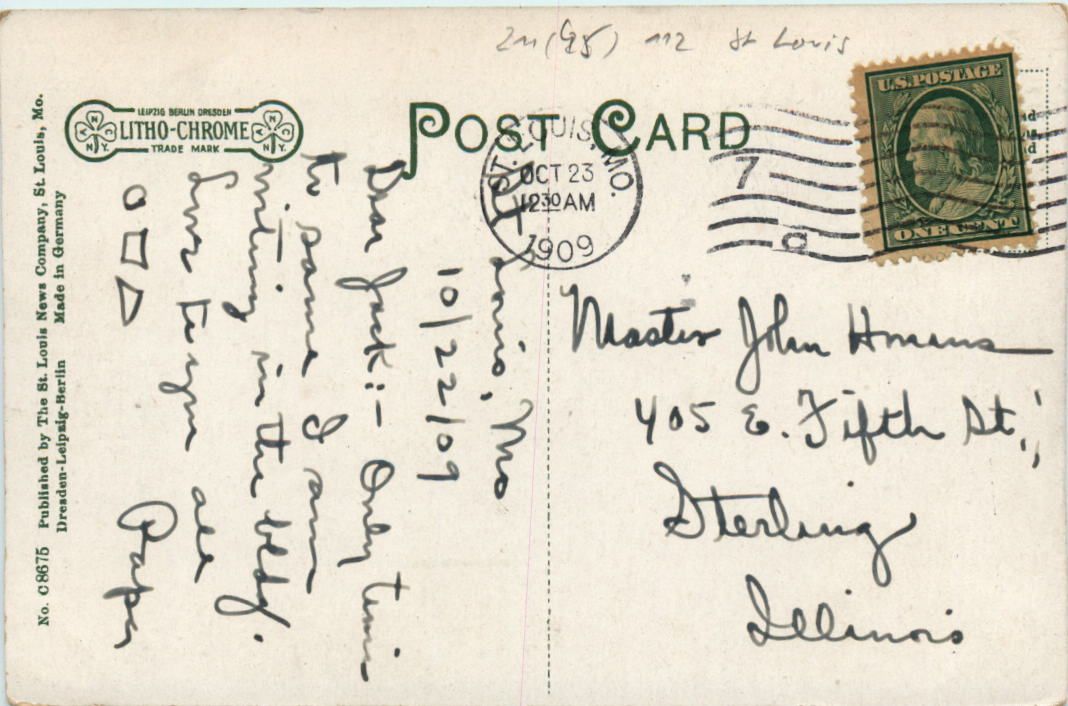 2n (95) 112 St Louis
LEIPZIG BERLIN DRESDEN
LITHO-CHROME
TRADE MARK
A N C
N.Y.
A N C
N.Y.
POST CARD
ST. LOUIS, MO.
OCT 23
12 30 AM
1909
7
a
U.S. POSTAGE
ONE CENT
No. C 8675 Published by The St. Louis News Company, St. Louis, Mo.
Dresden-Leipzig-Berlin Made in Germany
St Louis, Mo
10/22/09
Dear Jack:- Only time
to same I am
writing in the bldg.
Love to you all
Papa
Master John Homans
405 E. Fifth St.,
Sterling
Illinois